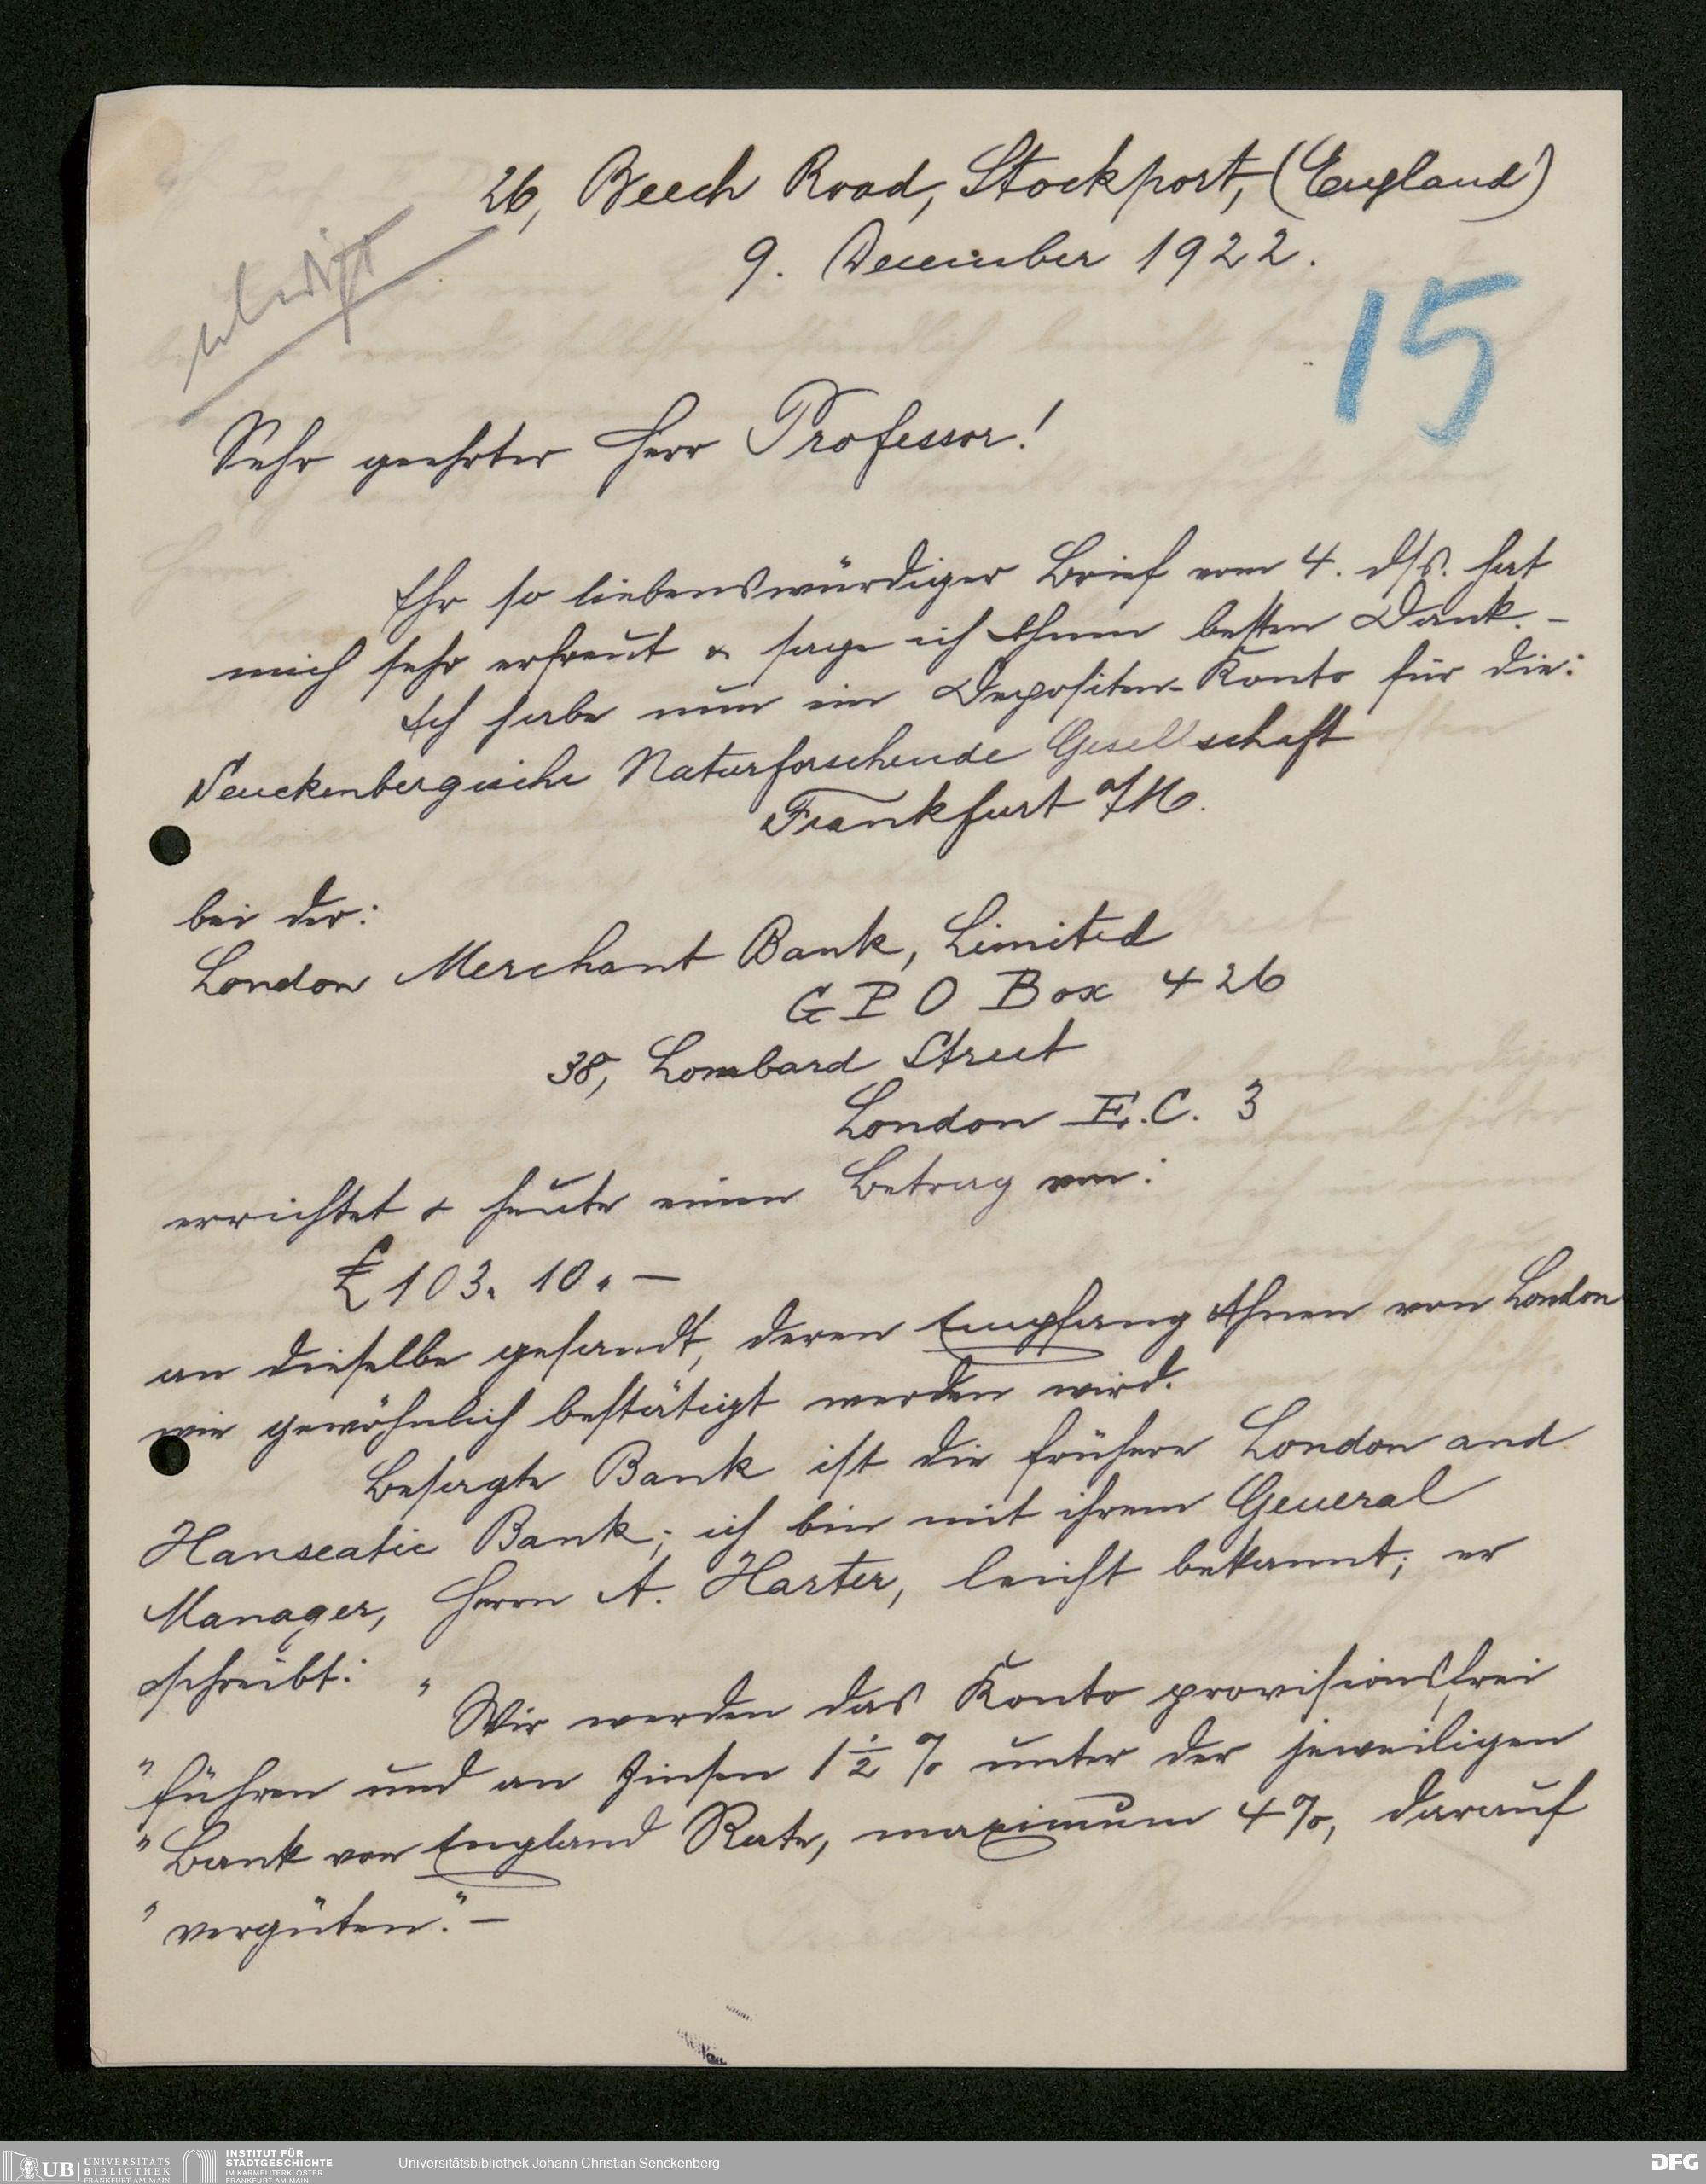 26, Beech Road, Stockport, (England)
9. December 1922.
erledigt
15
Sehr geehrter Herr Professor!
Ihr so liebenswürdiger Brief vom 4. dss. hat
mich sehr erfreut & sage ich Ihnen besten Dank. -
Ich habe nun ein Depositen-Konto für die:
Senckenbergische Naturforschende Gesellschaft
Frankfurt a/M.
bei der:
London Merchant Bank, Limited
G P O Box 426
38, Lombard Street
London E.C. 3
errichtet & heute einen Betrag von:
£ 103. 10. —
an dieselbe gesandt, deren Empfang Ihnen von London
wie gewöhnlich bestätigt werden wird.
Besagte Bank ist die frühere London and
Hanseatic Bank; ich bin mit ihrem General
Manager, Herrn A. Harter, leicht bekannt; er
schreibt: "
Wir werden das Konto provisionsfrei
" führen und an Zinsen 1½ % unter der jeweiligen
" Bank von England Rate, maximum 4%, darauf
" vergüten." —
UB
UNIVERSITÄTS
BIBLIOTHEK
FRANKFURT AM MAIN
INSTITUT FÜR
STADTGESCHICHTE
IM KARMELITERKLOSTER
FRANKFURT AM MAIN
Universitätsbibliothek Johann Christian Senckenberg
DFG